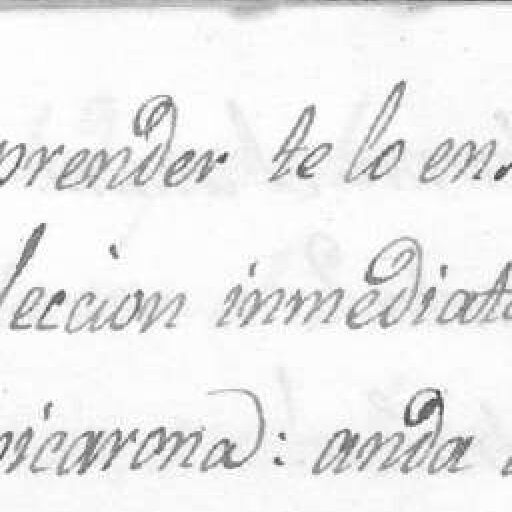 prender te lo en
leccion inmediat
picarona): anda